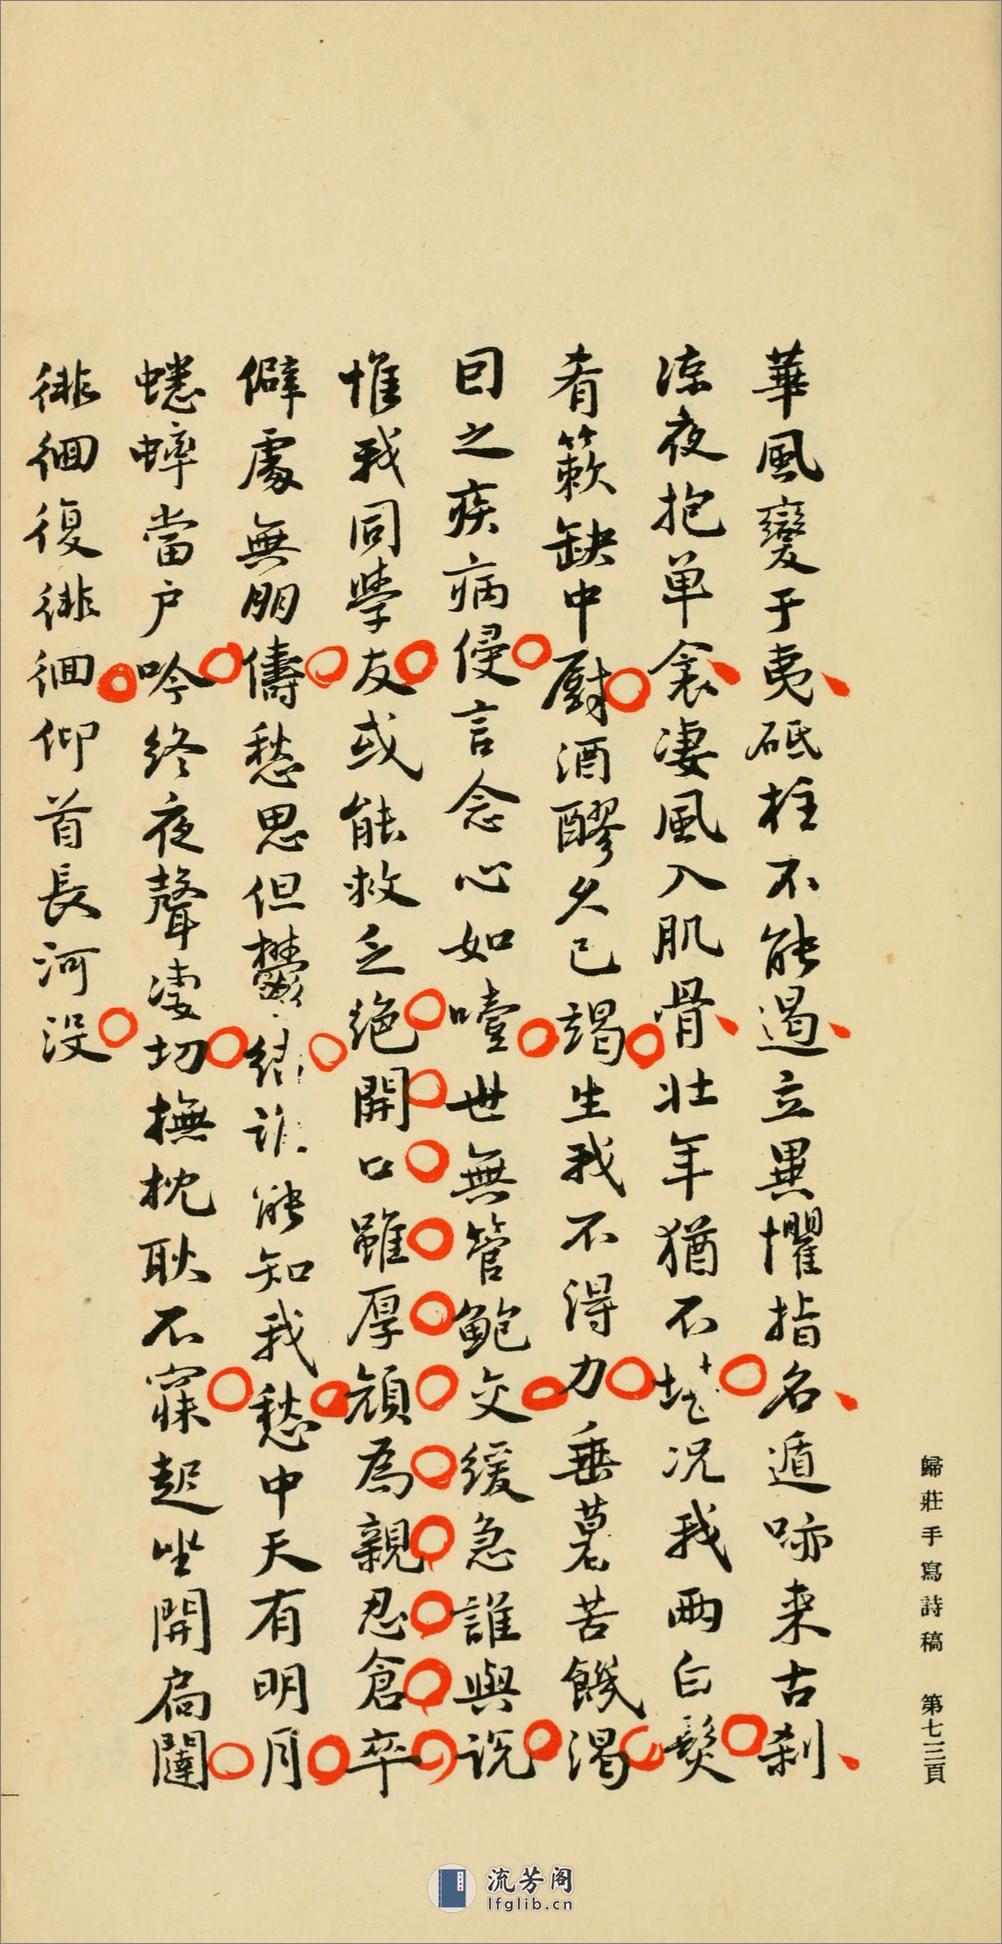 華風變于夷砥柱不能遏立異懼指名遁跡来古刹
涼夜抱单衾凄風入肌骨壮年猶不堪况我兩白鬂
肴簌缺中厨酒醪久已竭生我不得力垂老苦饑渴
因之疾病侵言念心如噎世無管鮑交緩急誰與説
惟我同學友或能救乏绝開口雖厚顔為親忍倉卒
僻處無朋儔愁思但鬱结誰能知我愁中天有明月
蟋蟀當户吟终夜聲凄切撫枕耿不寐起坐開扃闥
徘徊復徘徊仰首長河没
歸莊手寫詩稿 第七三頁
流芳阁
lfglib.cn